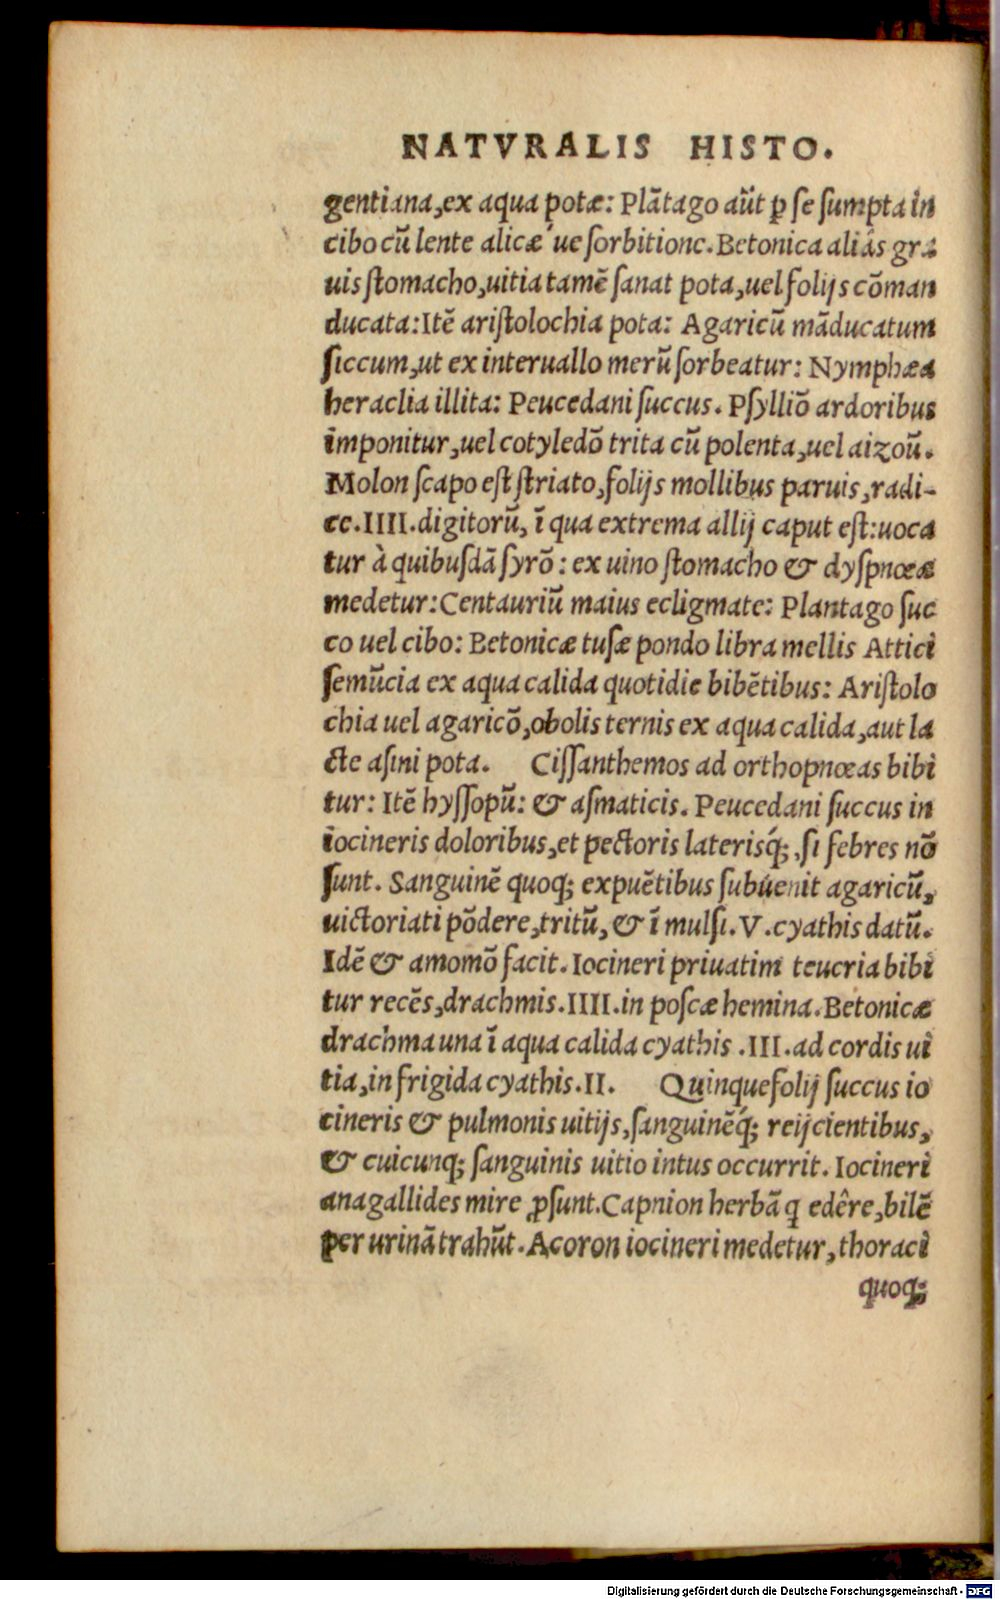 NATVRALIS HISTO.
gentiana,ex aqua potæ: Plãtago aũt ꝑ se sumpta in
cibo cũ lente alicæ´ue sorbitione. Betonica aliâs gra
uis stomacho,uitia tamẽ sanat pota,uel folijs cõman
ducata:Itẽ aristolochia pota: Agaricũ mãducatum
siccum,ut ex interuallo merũ sorbeatur: Nymphæa
heraclia illita: Peucedani succus. Psylliõ ardoribus
imponitur,uel cotyledõ trita cũ polenta,uel aizoũ.
Molon scapo est striato,folijs mollibus paruis,radi-
ce.IIII.digitorũ, ĩ qua extrema allij caput est:uoca
tur à quibusdã syrõ: ex uino stomacho & dyspnœæ
medetur:Centauriũ maius ecligmate: Plantago suc
co uel cibo: Betonicæ tusæ pondo libra mellis Attici
semũcia ex aqua calida quotidie bibẽtibus: Aristolo
chia uel agaricõ,obolis ternis ex aqua calida,aut la
cte asini pota. Cissanthemos ad orthopnœas bibi
tur: Itẽ hyssopũ: & asmaticis. Peucedani succus in
iocineris doloribus,et pectoris laterisq́;,si febres nõ
sunt. Sanguinẽ quoq; expuẽtibus subuenit agaricũ,
uictoriati põdere,tritũ, & ĩ mulsi.V.cyathis datũ.
Idẽ & amomõ facit. Iocineri priuatim teucria bibi
tur recẽs,drachmis.IIII.in poscæ hemina. Betonicæ
drachma una ĩ aqua calida cyathis .III.ad cordis ui
tia,in frigida cyathis.II. Quinquefolij succus io
cineris & pulmonis uitijs,sanguinẽq́; reijcientibus,
& cuicunq; sanguinis uitio intus occurrit. Iocineri
anagallides mire ꝓsunt.Capnion herbã q edêre,bilẽ
per urinã trahũt. Acoron iocineri medetur,thoraci
quoq;
Digitalisierung gefördert durch die Deutsche Forschungsgemeinschaft - DFG